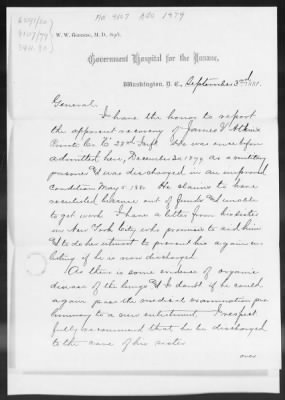 W. W. Godding, M.D., Supt.
Government Hospital for the Insane,
Washington, D. C., September 3rd 1881.
General.
I have the honor to report
the apparent recovery of James V. Atkins
Private Co. "K" 23rd Inft. He was once before
admitted here, December 20, 1879, as a military
prisoner & was discharged in an improved
condition May 5, 1880. He claims to have
reenlisted because out of funds & unable
to get work. I have a letter from his sister
in New York City who promises to aid him
& to do her utmost to prevent his again en-
listing if he is now discharged.
As there is some evidence of organic
disease of the lungs & I doubt if he could
again pass the medical examination pre-
liminary to a new enlistment. I respect-
fully recommend that he be discharged
to the care of his sister
over